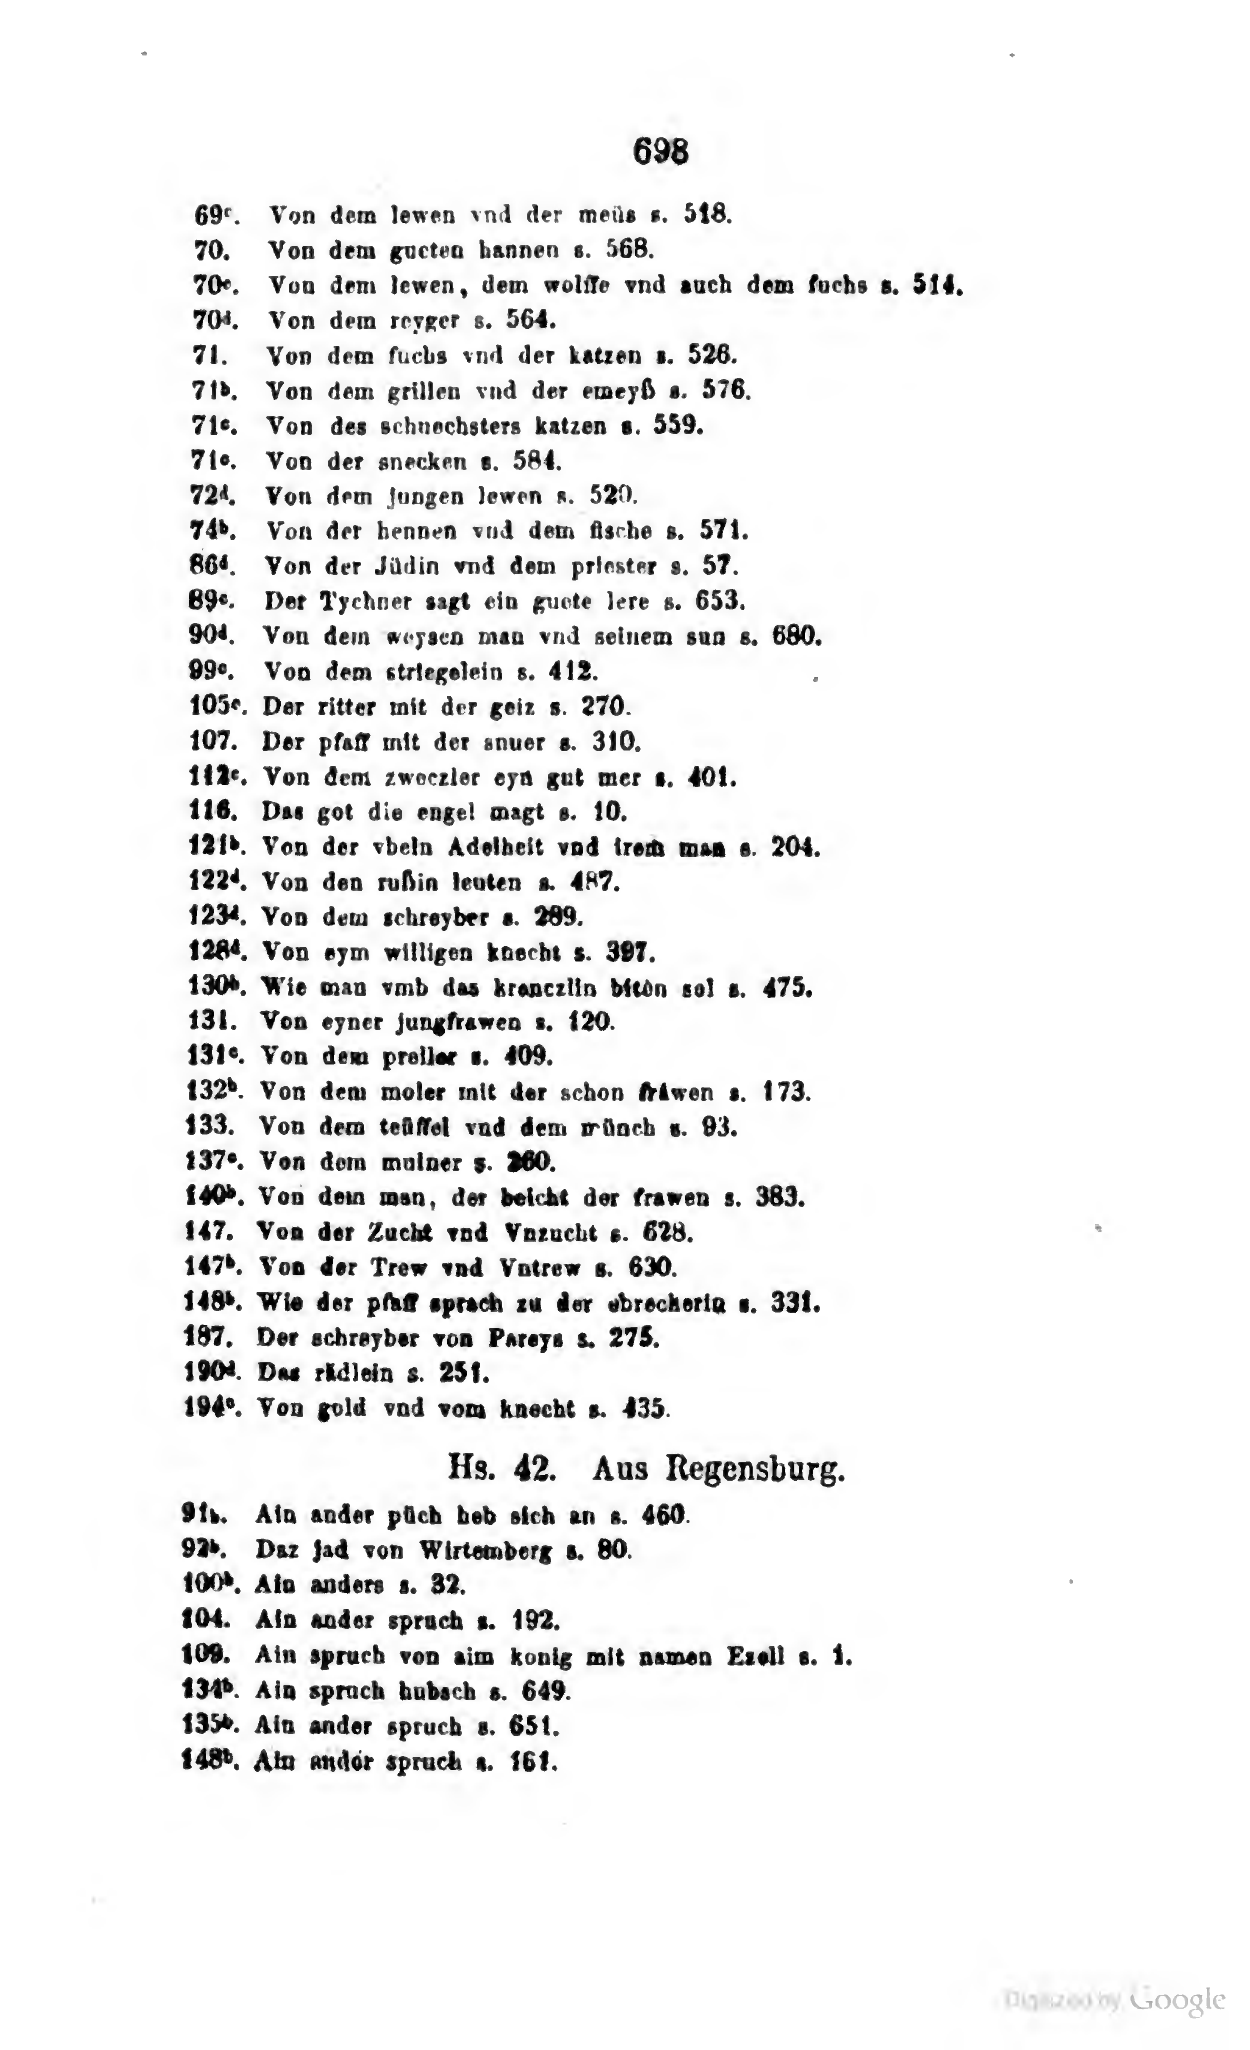 698
69ᶜ. Von dem lewen vnd der meüs s. 518.
70. Von dem gueten hannen s. 568.
70ᶜ. Von dem lewen, dem wolffe vnd auch dem fuchs s. 514.
70ᵈ. Von dem reyger s. 564.
71. Von dem fuchs vnd der katzen s. 526.
71ᵇ. Von dem grillen vnd der emeyß s. 576.
71ᶜ. Von des schuechsters katzen s. 559.
71ᶜ. Von der snecken s. 584.
72ᵈ. Von dem jungen lewen s. 520.
74ᵇ. Von der hennen vnd dem fische s. 571.
86ᵈ. Von der Jüdin vnd dem priester s. 57.
89ᶜ. Der Tychner sagt ein guote lere s. 653.
90ᵈ. Von dem weysen man vnd seinem sun s. 680.
99ᶜ. Von dem striegelein s. 412.
105ᶜ. Der ritter mit der geiz s. 270.
107. Der pfaff mit der snuer s. 310.
112ᶜ. Von dem zweczler eyn gut mer s. 401.
116. Das got die engel magt s. 10.
121ᵇ. Von der vbeln Adelheit vnd irem man s. 204.
122ᵈ. Von den rußin leuten s. 487.
123ᵈ. Von dem schreyber s. 289.
128ᵈ. Von eym willigen knecht s. 397.
130ᵇ. Wie man vmb das krenczlin biten sol s. 475.
131. Von eyner jungfrawen s. 120.
131ᶜ. Von dem preller s. 409.
132ᵇ. Von dem moler mit der schon fråwen s. 173.
133. Von dem teüffel vnd dem münch s. 93.
137ᶜ. Von dem mulner s. 260.
140ᵇ. Von dem man, der beicht der frawen s. 383.
147. Von der Zucht vnd Vnzucht s. 628.
147ᵇ. Von der Trew vnd Vntrew s. 630.
148ᵇ. Wie der pfaff sprach zu der ebrecherin s. 331.
187. Der schreyber von Pareys s. 275.
190ᵈ. Das rädlein s. 251.
194ᶜ. Von gold vnd vom knecht s. 435.
Hs. 42. Aus Regensburg.
91ᵇ. Ain ander püch heb sich an s. 460.
92ᵇ. Daz jad von Wirtemberg s. 80.
100ᵇ. Ain anders s. 32.
104. Ain ander spruch s. 192.
109. Ain spruch von aim konig mit namen Ezell s. 1.
134ᵇ. Ain spruch hubsch s. 649.
135ᵇ. Ain ander spruch s. 651.
148ᵇ. Ain ander spruch s. 161.
Digitized by Google